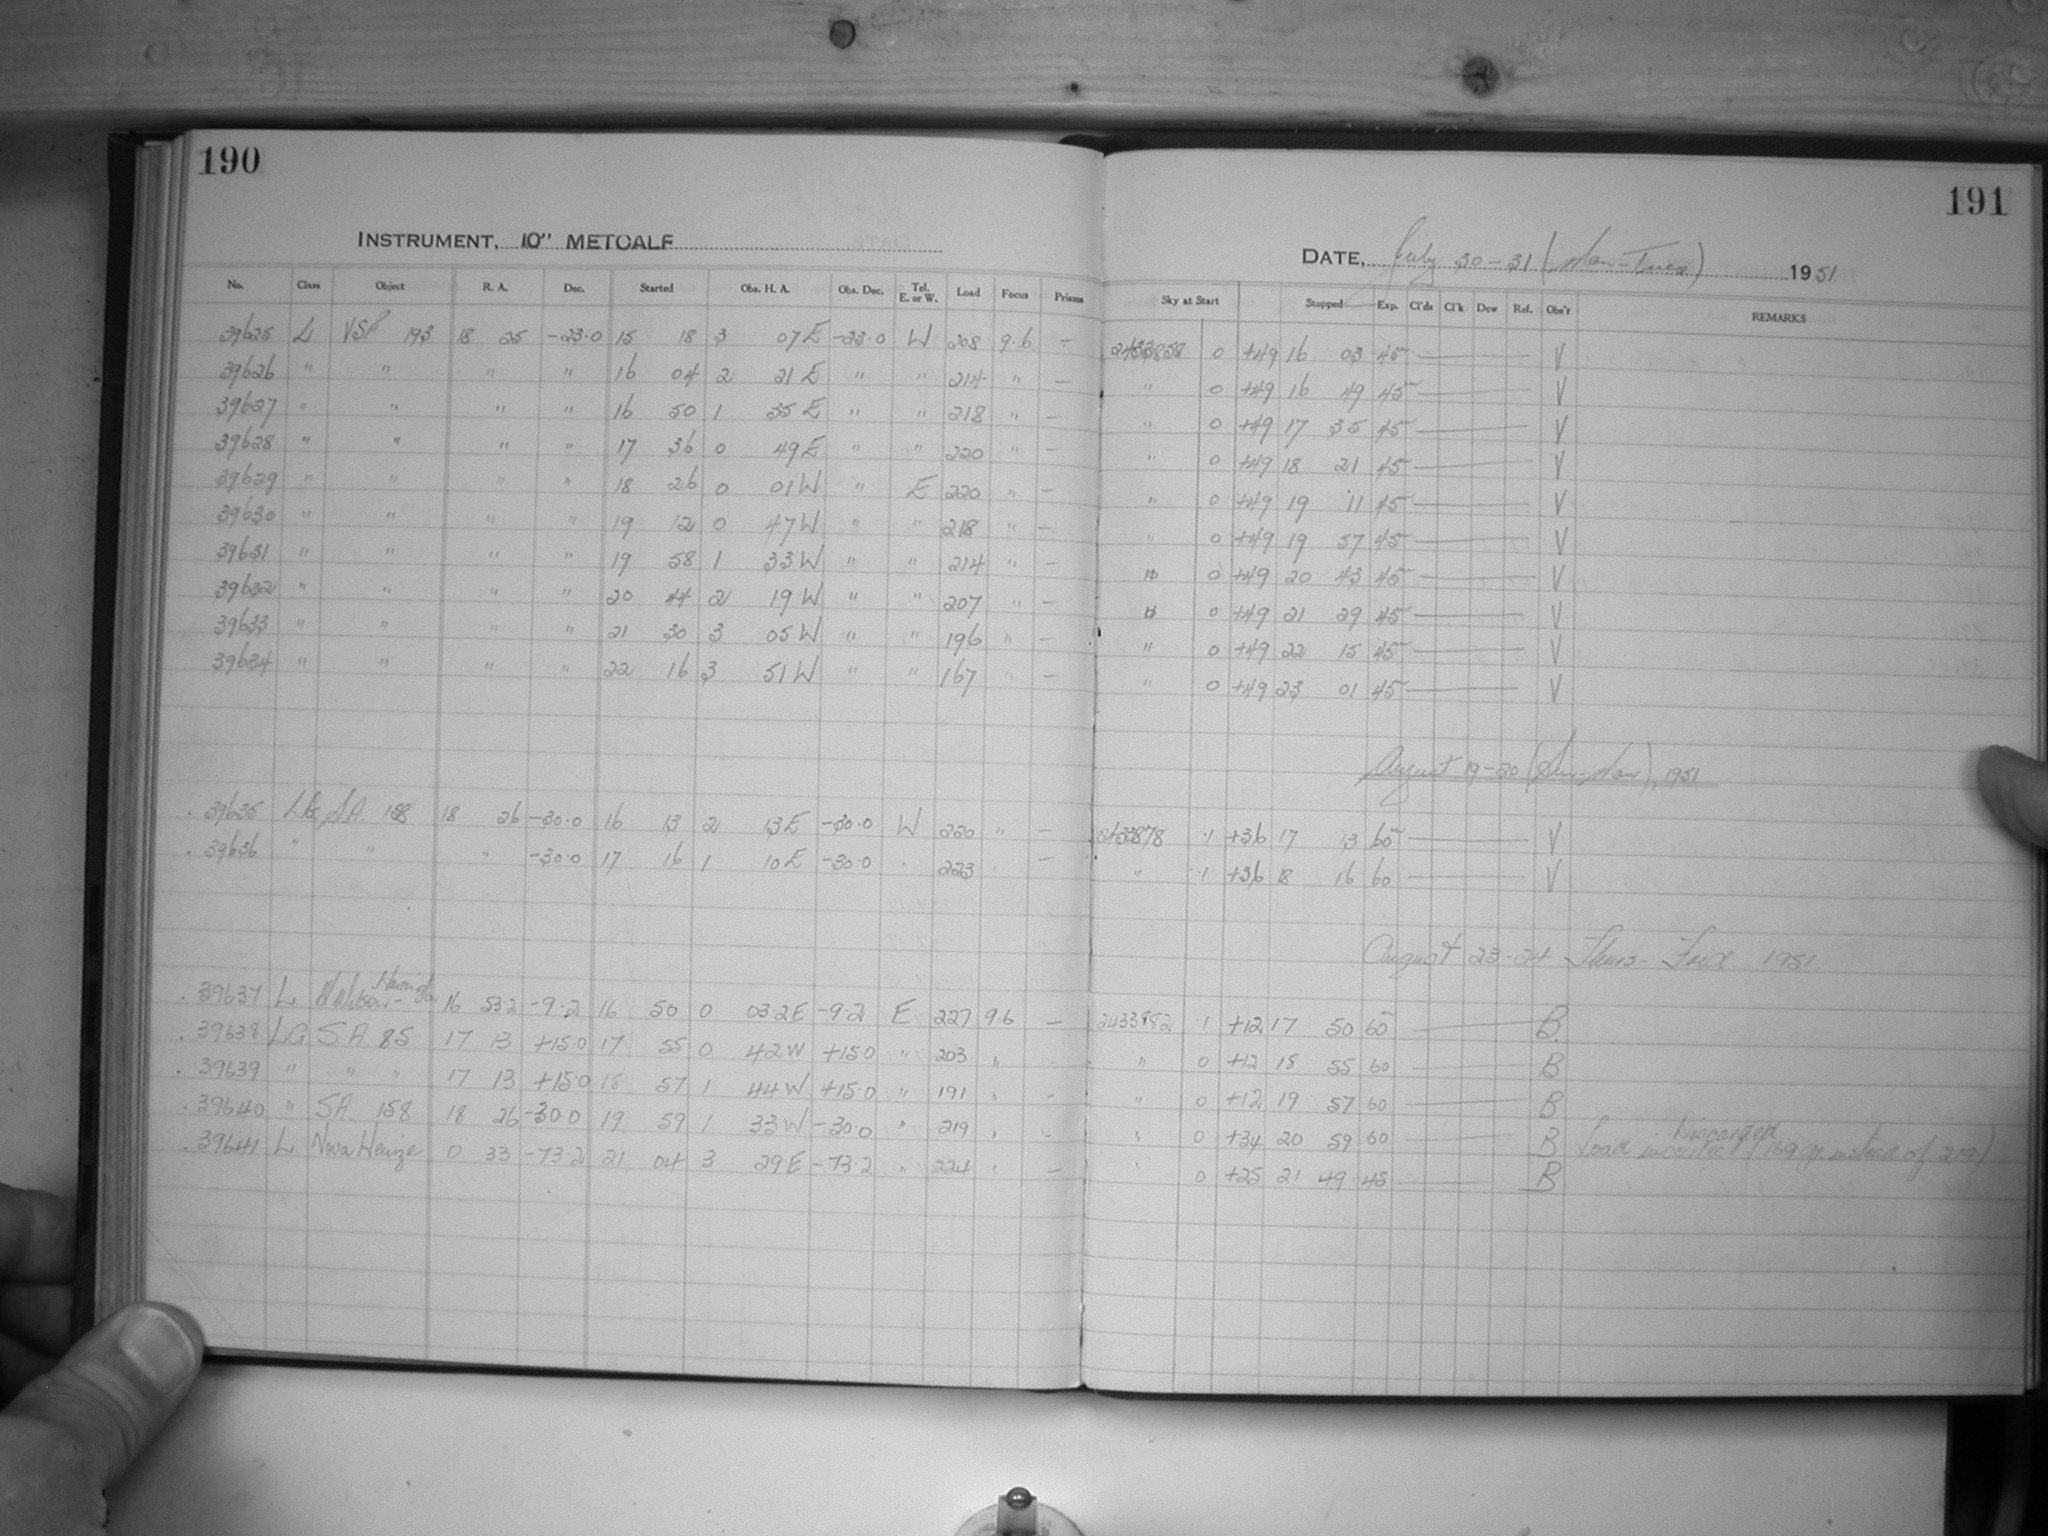 190
INSTRUMENT, 10" METCALF
No. Class Object R. A. Dec. Started Obs. H. A. Obs. Dec. Tel. E. or W. Load Focus Prisms
39625 L VSF 193 18 25 -23.0 15 18 3 07 E -23.0 W 208 9.6 —
39626 " " " " 16 04 2 21 E " " 214 " —
39627 " " " " 16 50 1 35 E " " 218 " —
39628 " " " " 17 36 0 49 E " " 220 " —
39629 " " " " 18 26 0 01 W " E 220 " —
39630 " " " " 19 12 0 47 W " " 218 " —
39631 " " " " 19 58 1 33 W " " 214 " —
39632 " " " " 20 44 2 19 W " " 207 " —
39633 " " " " 21 30 3 05 W " " 196 " —
39634 " " " " 22 16 3 51 W " " 167 " —
39635 LG S.A. 158 18 26 -30.0 16 13 2 13 E -30.0 W 220 " —
39636 " " " -30.0 17 16 1 10 E -30.0 " 223 " —
39637 L 16 53.2 -9.2 16 50 0 03.2 E -9.2 E 227 9.6 —
39638 LG S.A. 85 17 13 +15.0 17 55 0 42 W +15.0 " 203 " —
39639 " " " 17 13 +15.0 18 57 1 44 W +15.0 " 191 " —
39640 " S.A. 158 18 26 -30.0 19 59 1 33 W -30.0 " 219 " —
39641 L Nova Henize 0 33 -73.2 21 04 3 29 E -73.2 " 224 " —
191
DATE, July 30-31 (Mon-Tues) 1951
Sky at Start Stopped Exp. Cl'ds Cl'k Dew Ref. Obs'r REMARKS
2433858 0 +49 16 03 45m V
" 0 +49 16 49 45m V
" 0 +49 17 35 45 V
" 0 +49 18 21 45 V
" 0 +49 19 11 45 V
" 0 +49 19 57 45 V
" 0 +49 20 43 45 V
" 0 +49 21 29 45 V
" 0 +49 22 15 45 V
" 0 +49 23 01 45 V
August 19-20 (Sun-Mon), 1951
2433878 .1 +36 17 13 60m V
" .1 +36 18 16 60 V
August 23-24 Thurs- Frid. 1951
2433882 .1 +12 17 50 60m B.
" 0 +12 18 55 60 B
" 0 +12 19 57 60 B
Discarded
" 0 +34 20 59 60 B Load incorrect (169 gr. instead of 219)
" 0 +25 21 49 45 B